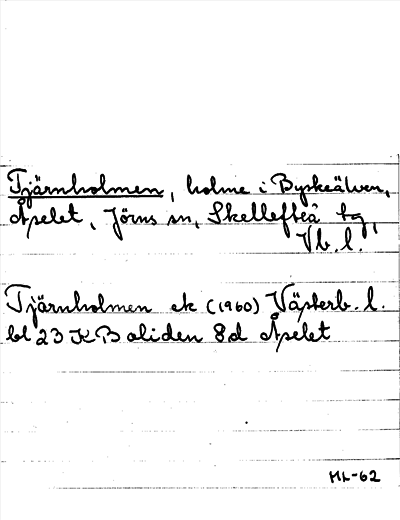 Tjärnholmen, holme i Byskeälven,
Åselet, Jörns sn, Skellefteå tg,
Vb. l.
Tjärnholmen ek (1960) Västerb. l.
bl 23 K Boliden 8d Åselet
HL-62